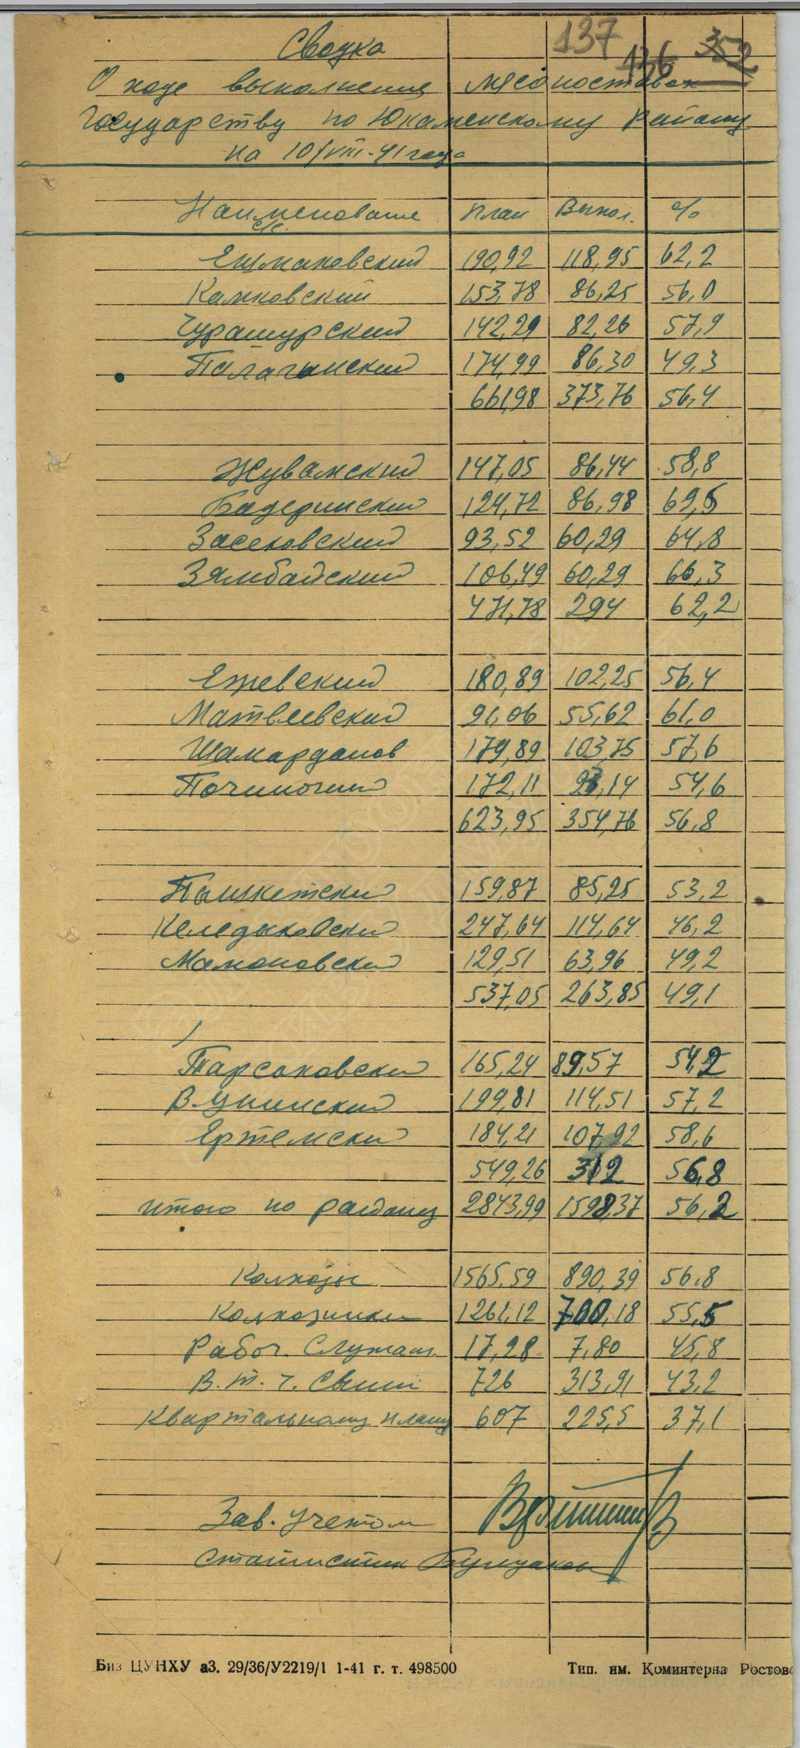 137 136 352
Сводка
О ходе выполнения мясопоставок
Государству по Юкаменскому району
на 10/VIII-41 года
Наименование план Выпол. %
с/с.
Ежмановский 190,92 118,95 62,2
Камковский 153,78 86,25 56,0
Чурашурский 142,29 82,26 57,9
Палагинский 174,99 86,30 49,3
661,98 373,76 56,4
Жувамский 147,05 86,44 58,8
Бадеринский 124,72 86,98 69,5
Засековский 93,52 60,29 64,8
Зямбайский 106,49 60,29 66,3
471,78 294 62,2
Ежевский 180,89 102,25 56,4
Матвеевский 91,06 55,62 61,0
Шамарданов 179,89 103,75 57,6
Починский 172,11 93,14 54,6
623,95 354,76 56,8
Пышкетский 159,87 85,25 53,2
Келедыковский 247,64 114,64 46,2
Мамоновский 129,51 63,96 49,2
537,05 263,85 49,1
Тарсаковский 165,24 89,57 54,2
В.Унинский 199,81 114,51 57,2
Ертемский 184,21 107,92 58,6
549,26 312 56,8
итого по району 2843,99 1598,37 56,2
Колхозы 1565,59 890,39 56,8
Колхозники 1261,12 700,18 55,5
Рабоч. Служащ. 17,28 7,80 45,8
В. т. ч. Свини 726 313,91 43,2
Квартальному плану 607 225,5 37,1
Зав. учетом
Статистик
Биз ЦУНХУ аЗ. 29/36/У2219/1 1-41 г. т. 498500 Тип. им. Коминтерна Ростов